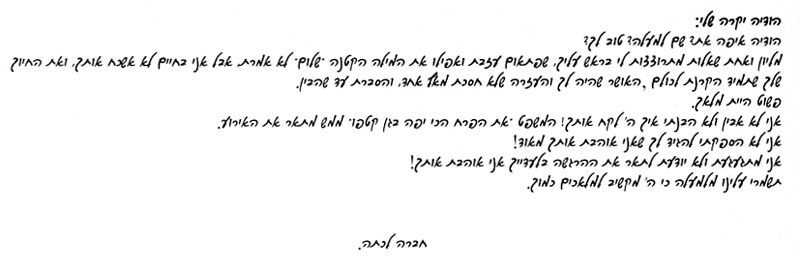 הודיה יקרה שלי:
הודיה איפה את? שם למעלה? טוב לך?
מליון ואחת שאלות מתרוצצות לי בראש עליך, שפתאום עזבת ואפילו את המילה הקטנה "שלום" לא אמרת. אבל אני בחיים לא אשכח אותך, ואת החיוך
שלך שתמיד הקרנת לכולם, האושר שהיה לך והעזרה שלא חסכת מאף אחד, והסברת עד שהבין.
פשוט היית מלאך.
אני לא אבין ולא הבנתי איך ה' לקח אותך! המשפט "את הפרח הכי יפה בגן קטפו" ממש מתאר את האירוע.
אני לא הספקתי להגיד לך שאני אוהבת אותך מאוד!
אני מתגעגעת ולא יודעת לתאר את ההרגשה בלעדייך אני אוהבת אותך!
תשמרי עלינו מלמעלה כי ה' מקשיב למלאכים כמוך.
חברה לכתה.